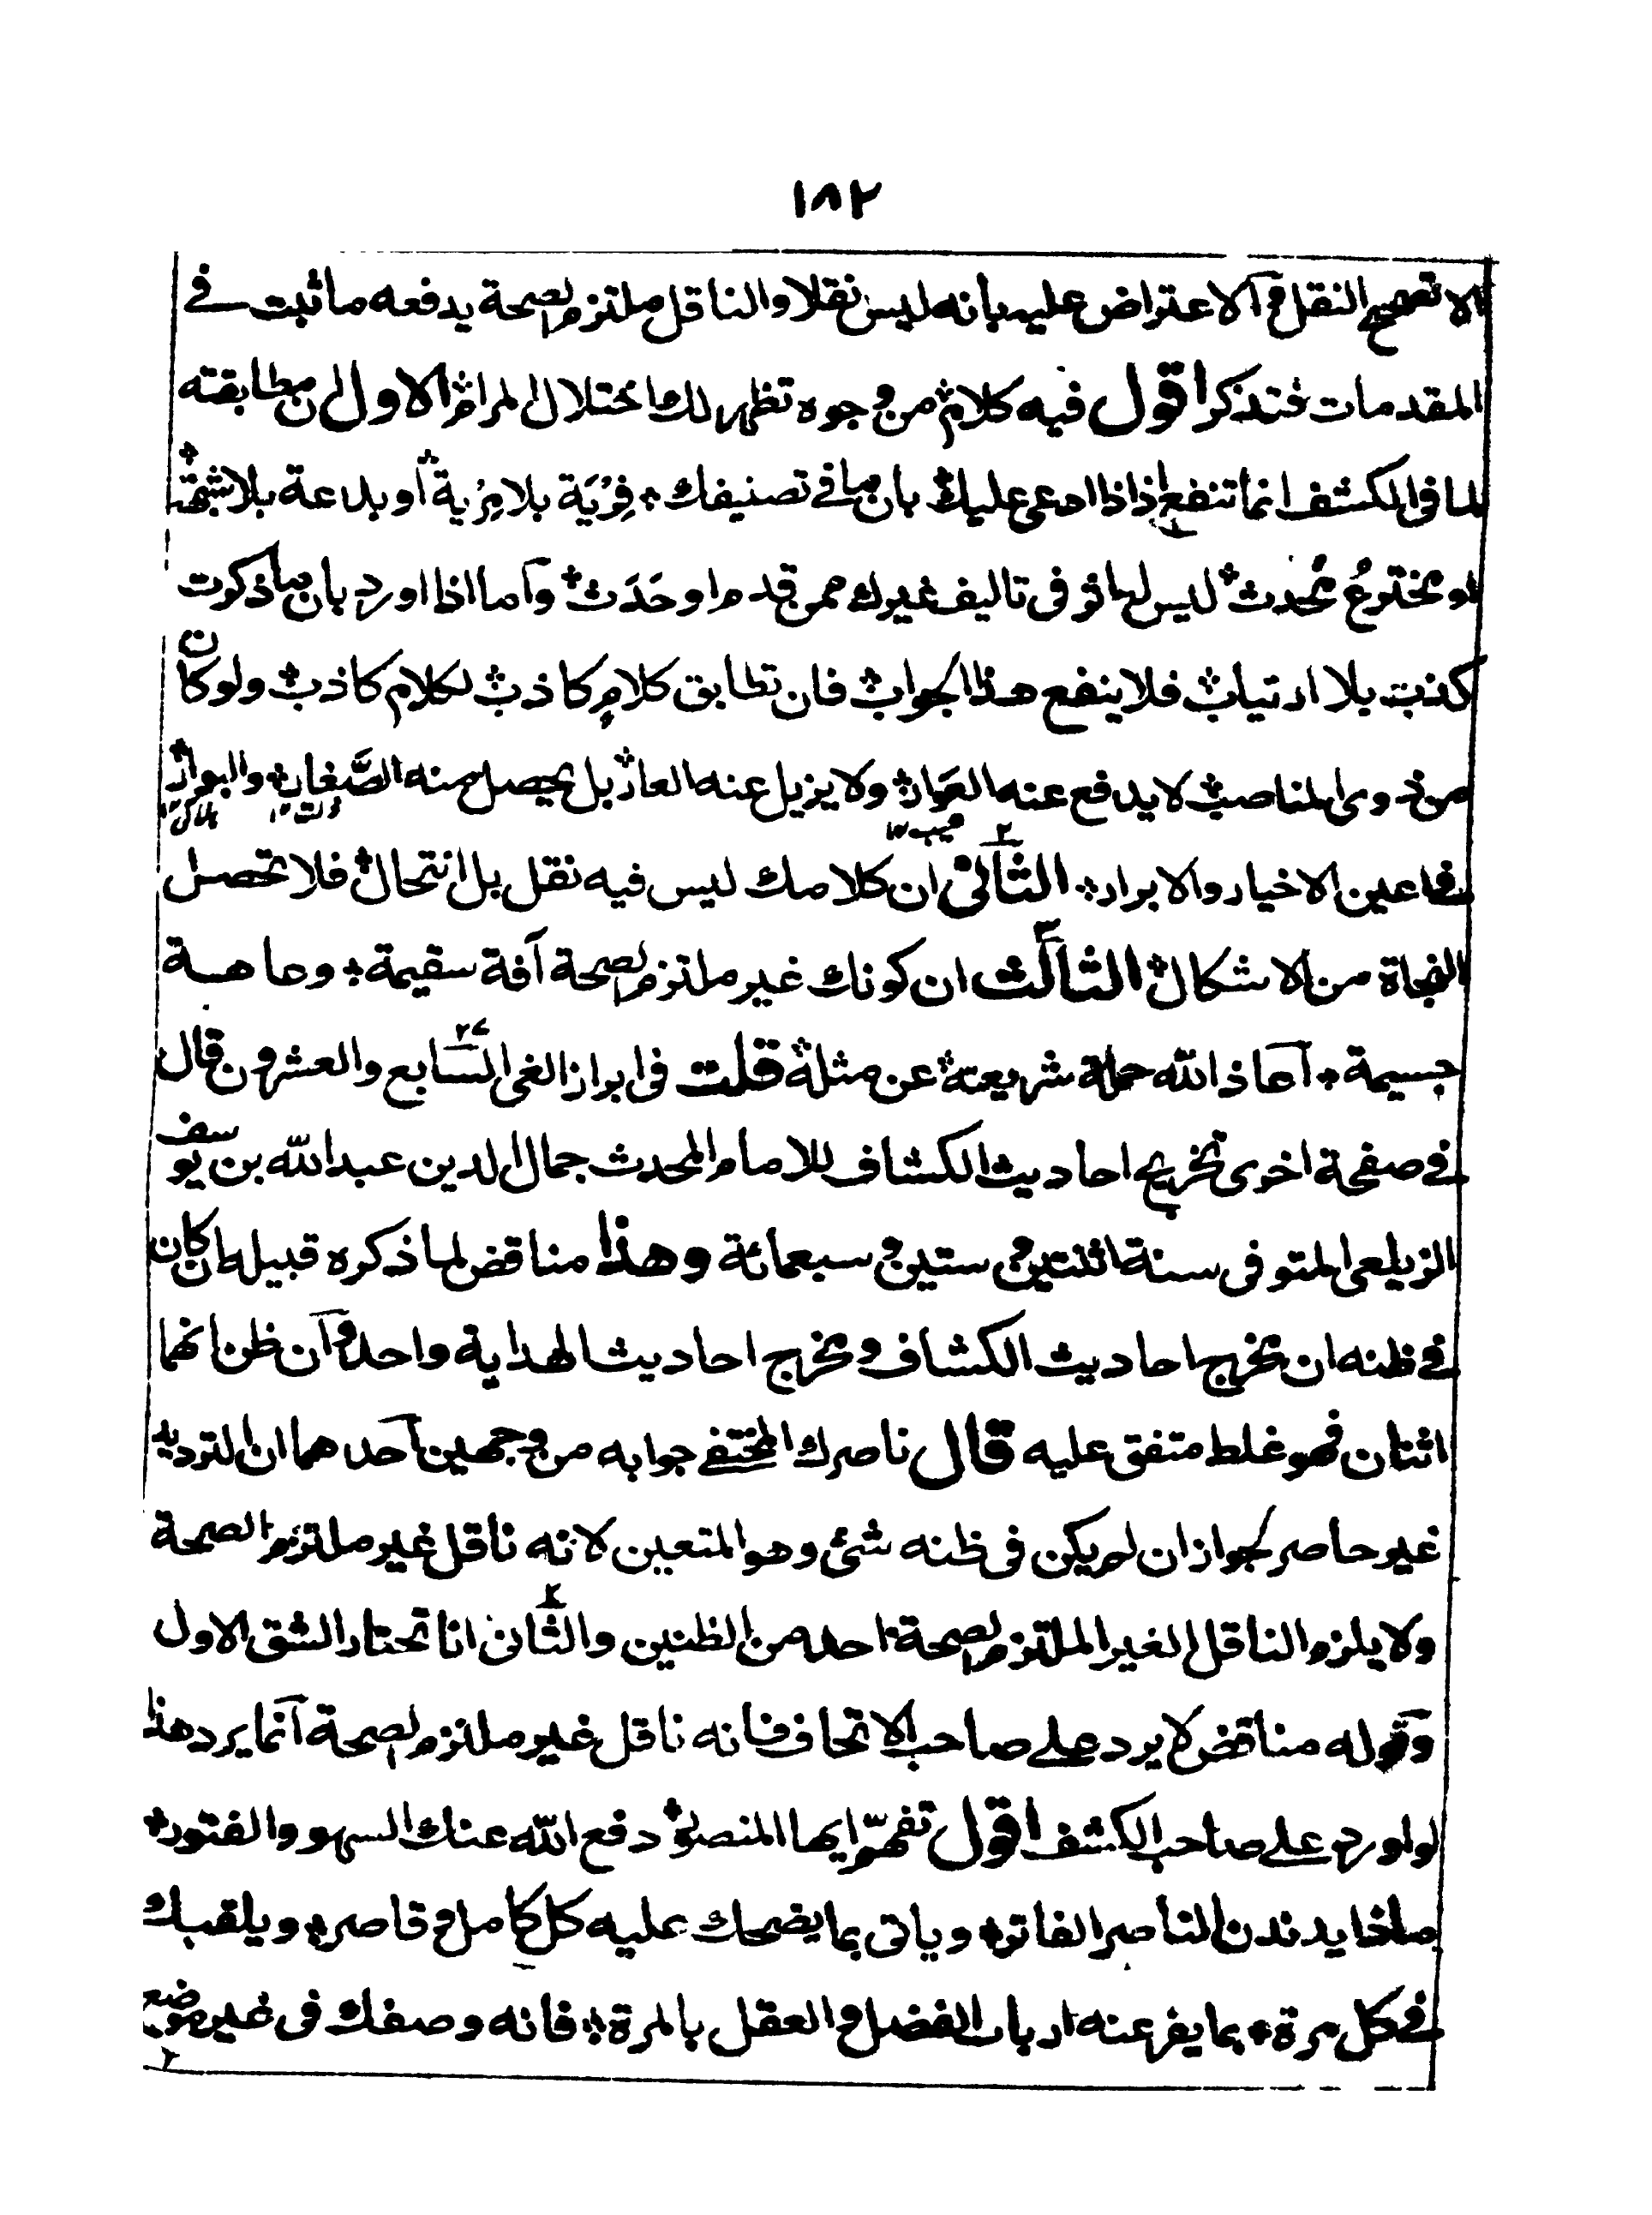 ١٨٢
الا تصحيح النقل و الاعتراض عليه بانه ليس نقلا والناقل ملتزم لصحة يدفعه ما ثبت في
المقدمات فتذكر اقول فيه كلام من وجوه تظهر لك اختلال المرام الاول ان مطابقته
لما في الكشف انما تنفع اذا ادعى عليك بان ما في تصنيفك فِرْيَة بلا مِرْية او بدعة بلا شبهة
او مخترعُ مُحدث ليس لها اثر في تاليف غيرك ممن قدم او حَدَث واما اذا اورد بان ما ذكرت
كذب بلا ارتياب فلا ينفع هذا الجواب فان تطابق كلامٍ كاذب لكلام كاذب ولو كان
من ذوى المناصب لا يدفع عنه العَوار ولا يزيل عنه العار بل يحصل منه الصَّغار والبوار
ذلت ١٢ هلاكى ١٢
عيب ١٢
في اعين الاخيار والابرار الثاني ان كلامك ليس فيه نقل بل انتحال فلا تحصل
النجاة من الاشكال الثالث ان كونك غير ملتزم لصحة آفة سقيمة وعاهة
جسيمة اعاذ الله حملة شريعته عن مثله قلت في ابراز الغى السابع والعشرون قال
في صفحة اخرى تخريج احاديث الكشاف للامام المحدث جمال الدين عبد الله بن يوسف
الزيلعى المتوفى سنة اثنتين و ستين و سبعمائة وهذا مناقض لما ذكره قبيله ان كان
في ظنه ان تخريج احاديث الكشاف و تخرج احاديث الهداية واحد وان ظن انهما
اثنان فهو غلط متفق عليه قال ناصرك المختفي جوابه من وجهين احدهما ان الترديد
غير حاصر لجواز ان لم يكن في ظنه شئ وهو المتعين لانه ناقل غير ملتزم الصحة
ولا يلزم الناقل الغير الملتزم لصحة احد من الظنين والثاني انا نختار الشق الاول
وقوله مناقض لا يرد على صاحب الاتحاف فانه ناقل غير ملتزم لصحة انما يرد هذا
لو اورد على صاحب الكشف اقول تفهّم ايها المنصور دفع الله عنك السهو والفتور
ماذا يدندن الناصر الفاتر وياتى بما يضحك عليه كل كامل و قاصر ويلقبك
في كل مرة بما يفر عنه ارباب الفضل و العقل بالمرة فانه وصفك في غير موضع